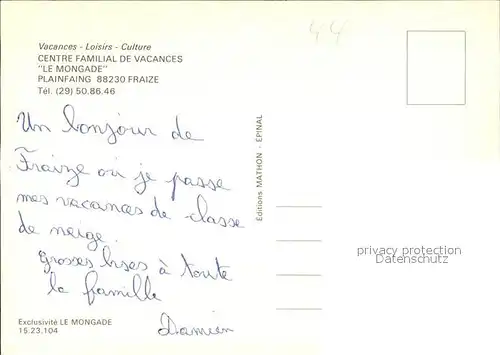 44
Vacances - Loisirs - Culture
CENTRE FAMILIAL DE VACANCES
"LE MONGADE"
PLAINFAING 88230 FRAIZE
Tél. (29) 50.86.46
Un bonjour de
Fraize où je passe
mes vacances de classe
de neige.
Grosses bises à toute
la famille
Damien
Editions MATHON - EPINAL
privacy protection
Datenschutz
Exclusivité LE MONGADE
15.23.104